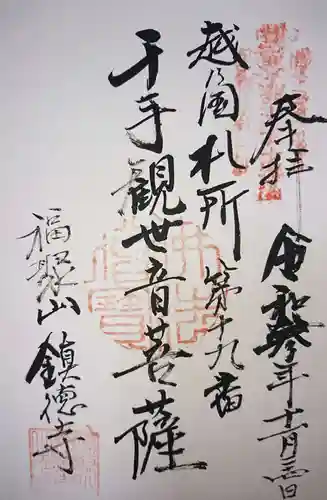 奉拝 令和参年十一月三日
越乃国札所第十九番
千手観世音菩薩
福聚山 鎮徳寺